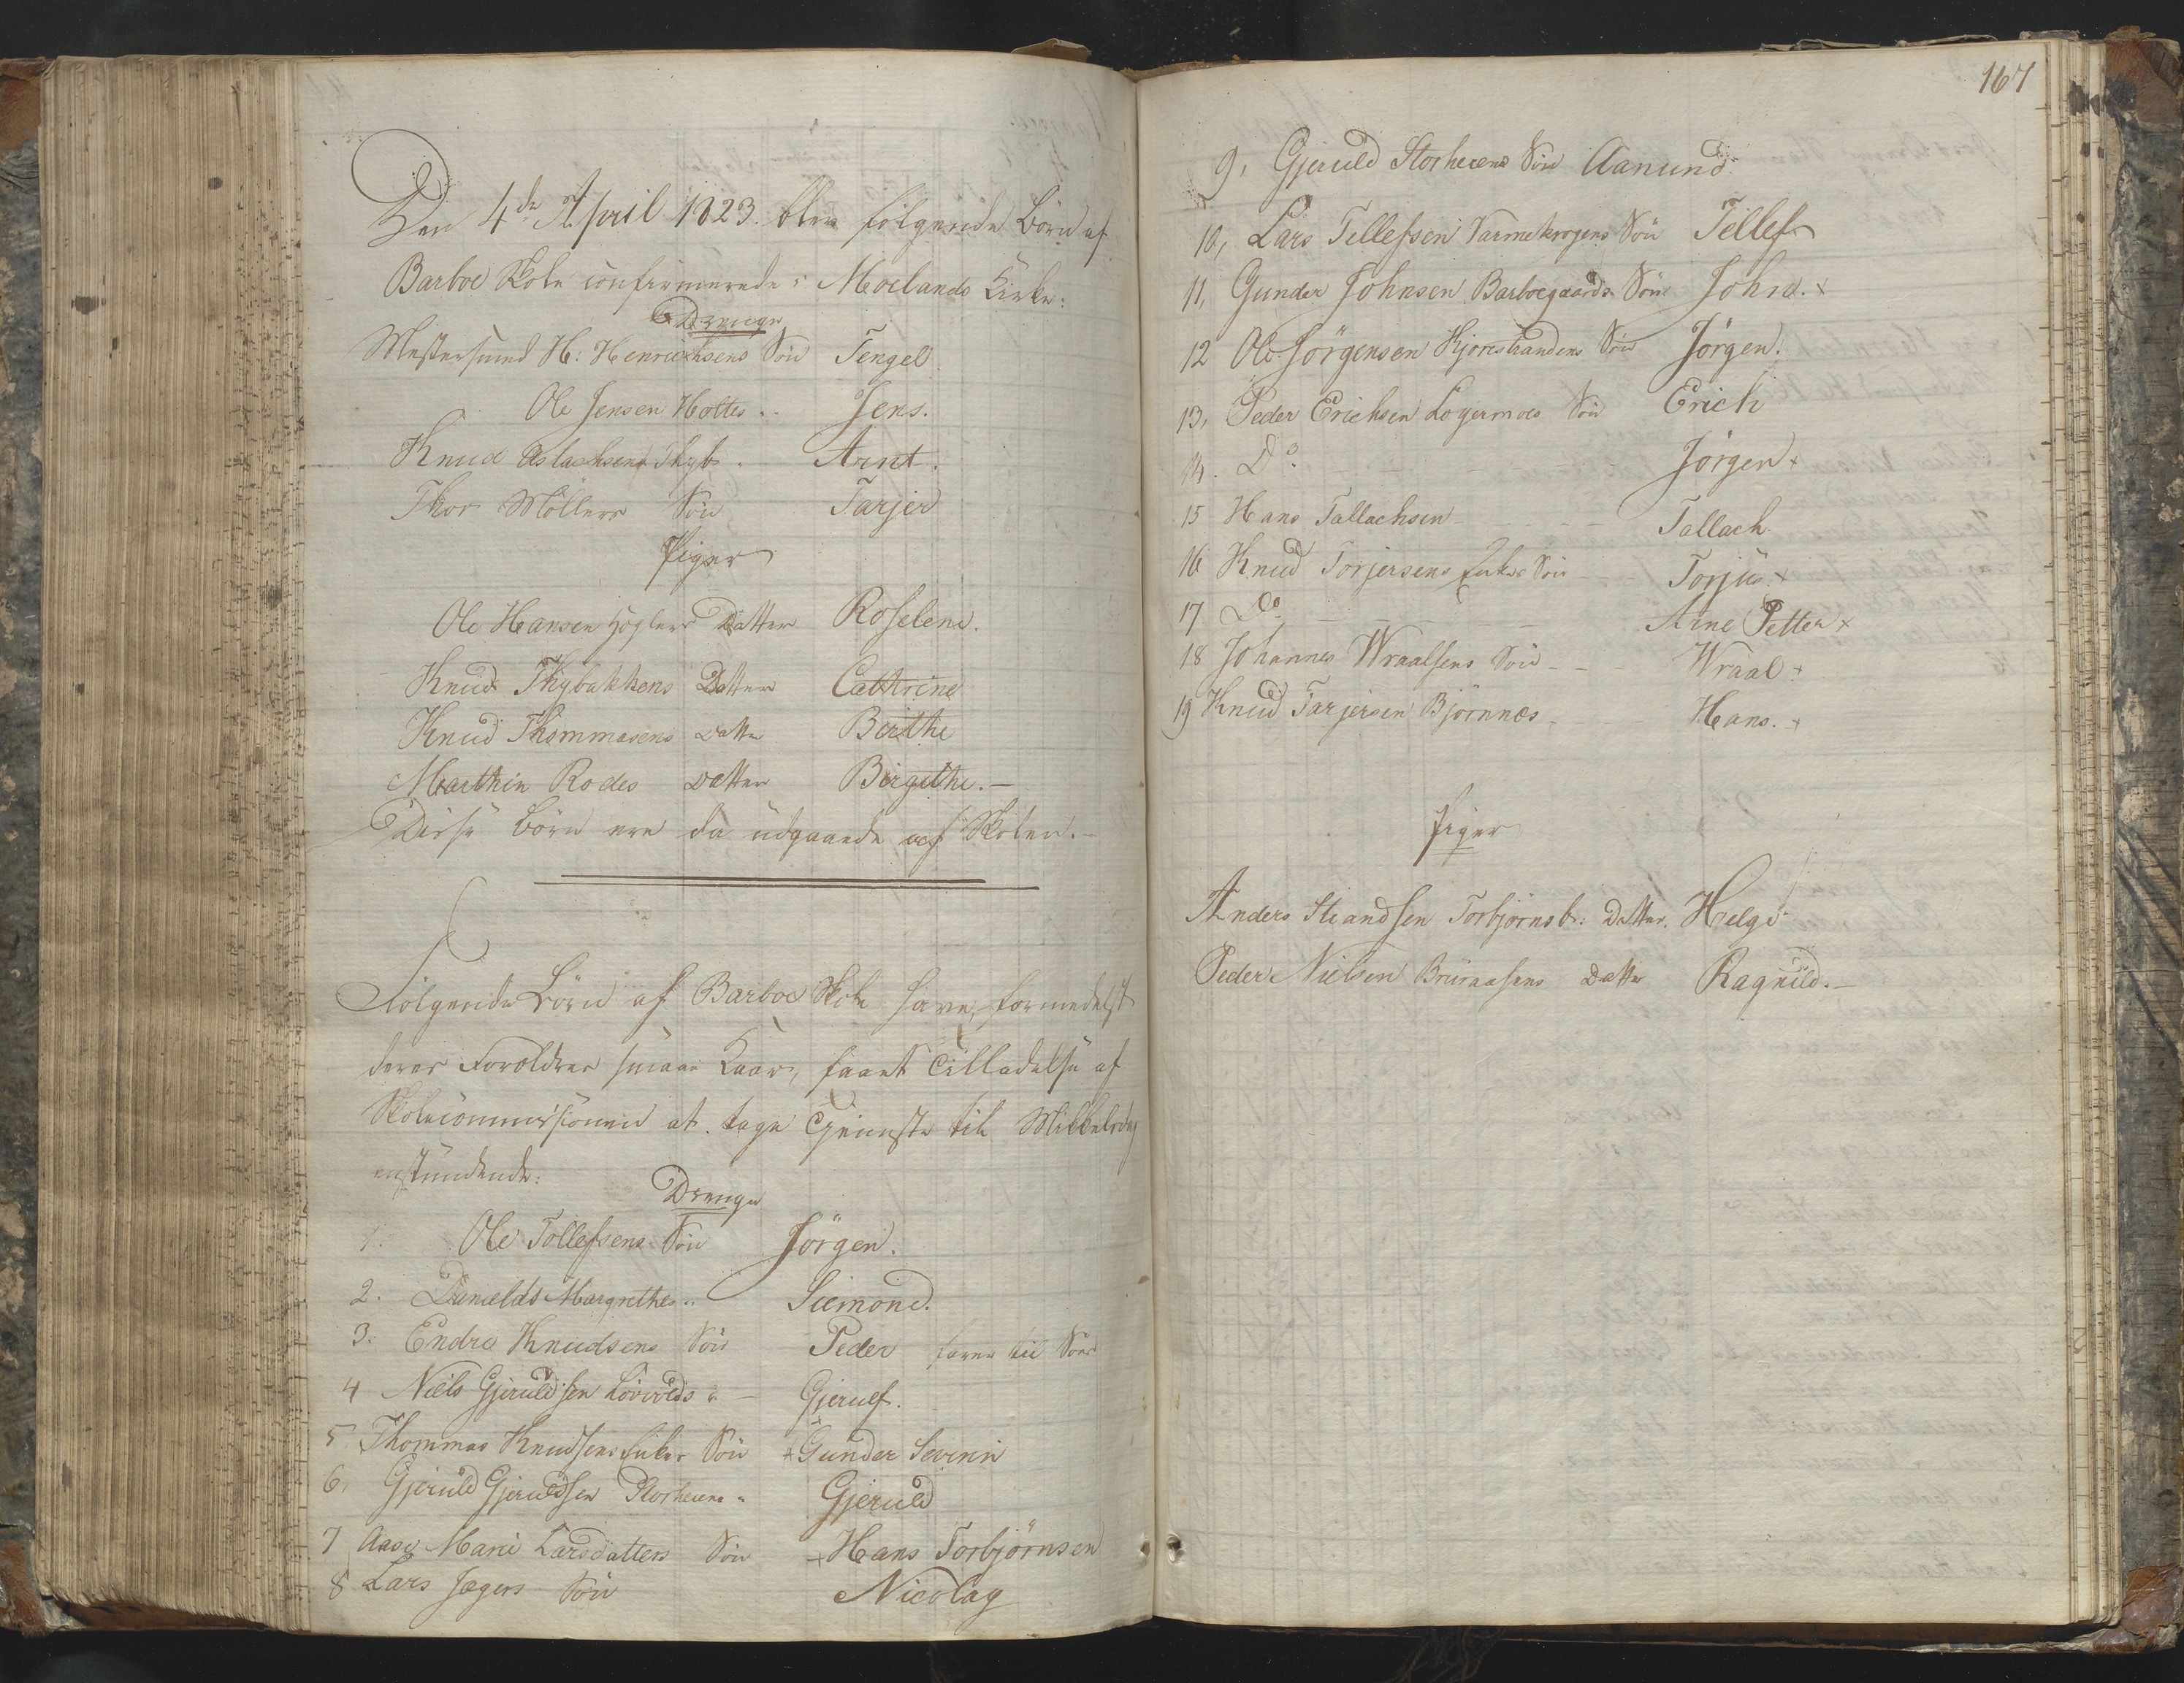 Den 4de April 1823. blev følgende Börn af
Barboe Skole confirmerede i Moelands Kirke:
Drenge
Mestersvend H: Henrichsens Sön Tengel
Ole Jensen Holtes „ Jens.
Knud Aslachsens Thyb. Arnt.
Thor Möllers Sön Tarjer
Piger
Ole Hansen Höglers Datter Roselene.
Knud Thybakkens Datter Cathrine
Knud Thommasens Datter Birthe
Marthin Rodes Datter Birgithe. —
Disse Börn ere da udgaaede af Skolen. —
Fölgende Börn af Barboe Skole have, formedelst
deres Forældres smaae Kaar, faaet Tilladelse af
Skolecommissionen at tage Tjeneste til Mikkelsdag
anstundende:
Drenge
1. Ole Tollefsens Sön Jörgen.
2. Margrethes „ Siemond.
3. Endre Knudsens Sön Peder farer til Söes
4 Niels Gjeruldsen Lövolds „ — Gjerulf.
5 Thommas Knudsens Enkes Sön + Gunder Severin
6, Gjeruld Gjeruldsen Storheiens „ Gjeruld
7 Aase Marie Larsdatters Sön + Hans Torbjörnsen
8 Lars Jægers Sön Nicolay
167
9, Gjeruld Storheiens Sön Aanund
10, Lars Tellefsen Varmekrogens Sön Tellef
11, Gunder Johnsen Barboegaards Sön John. +
12 Ole Jörgensen Kjorestrandens Sön Jörgen.
13, Peder Erichsen Logermoes Sön Erich
14. Do — — — Jörgen +
15 Hans Tallachsen — — Tallach
16 Knud Torjersens Enkes Sön — Torjus. +
17 Do — — — Arne Petter +
18 Johannes Wraalsens Sön — — Wraal +
19 Knud Tarjersen Björnnes — Hans. +
Piger
Anders Strandsen Torbjörnsb: Datter. Helge
Peder Nielsen Bruraasens Datter Ragnild. —